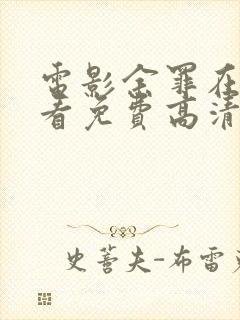 電影金罪在
看免費高清
史蒼夫-布雷克